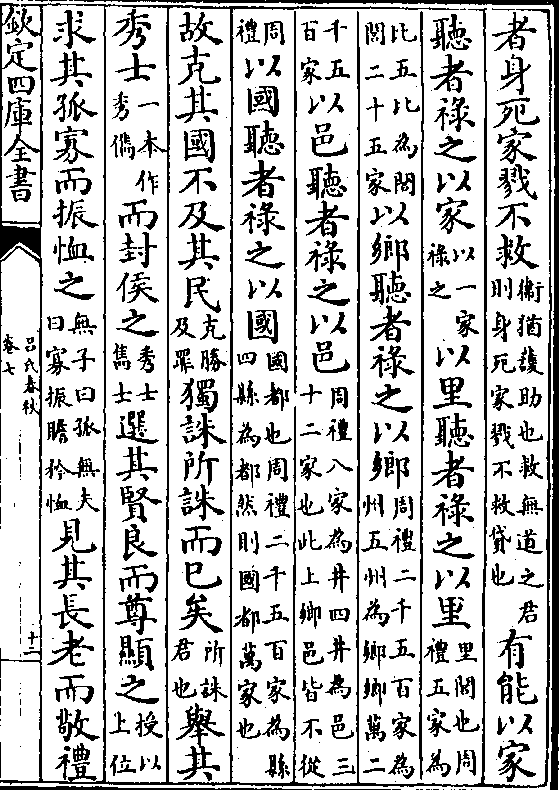 者身死家戮不救衛猶護助也救無道之君則身死家戮不救貸也有能以家
聽者祿之以家以一家祿之以里聽者祿之以里里閭也周禮五家為
比五比為閭閭二十五家以鄉聽者祿之以鄉周禮二千五百家為州五州為鄉鄉萬二
千五百家以邑聽者祿之以邑周禮八家為井四井為邑三十二家也此上鄉邑皆不從
周禮以國聽者祿之以國國都也周禮二千五百家為縣四縣為都然則國都萬家也
故克其國不及其民克勝及罪獨誅所誅而已矣所誅君也舉其
秀士一本作秀儁而封侯之秀士雋士選其賢良而尊顯之授以上位
求其孤寡而振恤之無子曰孤無夫曰寡振贍矜恤見其長老而敬禮
欽定四庫全書
呂氏春秋
卷七
十二